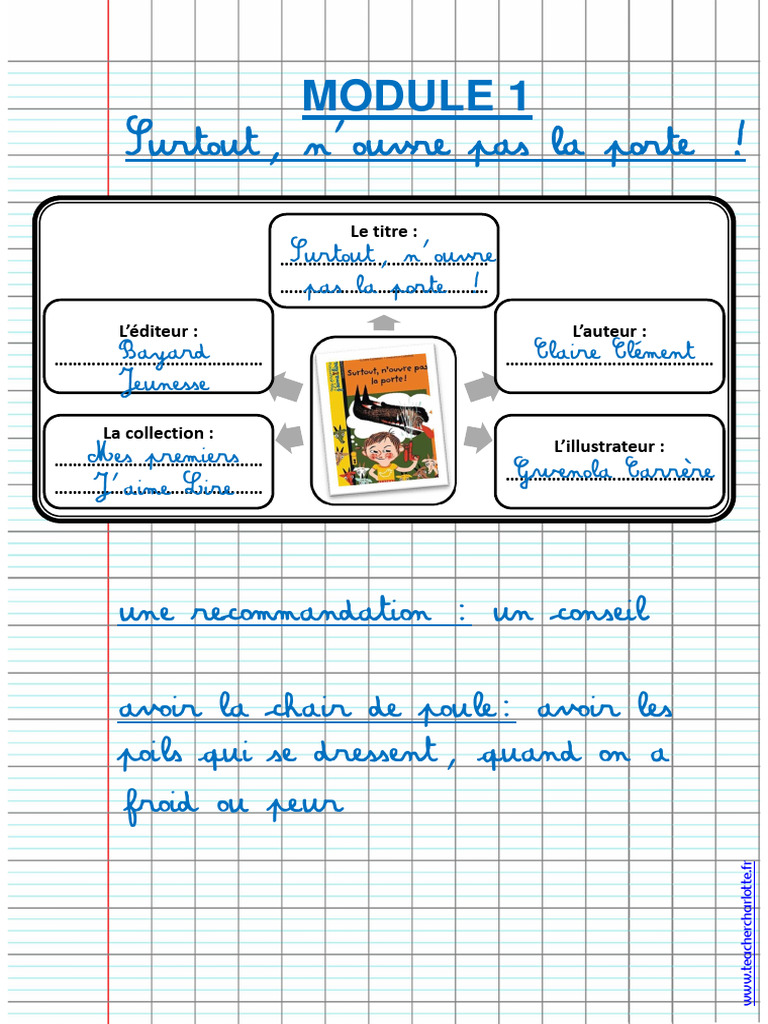 MODULE 1
Surtout, n'ouvre pas la porte !
Le titre :
Surtout, n'ouvre
pas la porte !
L'éditeur :
Bayard
Jeunesse
L'auteur :
Claire Clément
La collection :
Mes premiers
J'aime Lire
L'illustrateur :
Gwenola Carrère
Surtout, n'ouvre pas
la porte !
une recommandation : un conseil
avoir la chair de poule : avoir les
poils qui se dressent, quand on a
froid ou peur
www.teachercharlotte.fr